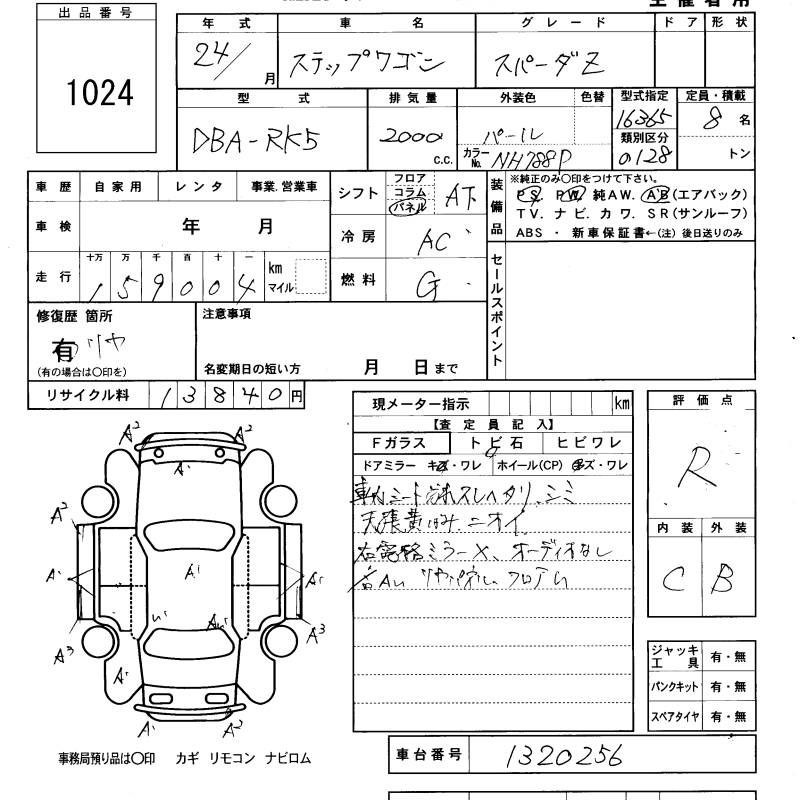 出品番号
1024
年式 車名 グレード ドア 形状
24/ 月 ステップワゴン スパーダZ
型式 排気量 外装色 色替 型式指定 定員・積載
DBA-RK5 2000 c.c. パール 16365 8名
類別区分
カラーNo. NH788P 0128 トン
車歴 自家用 レンタ 事業.営業車
車検 年 月
走行 十万 万 千 百 十 一 km マイル
159004
シフト フロア コラム パネル AT
冷房 AC
燃料 G
装備品
※純正のみ〇印をつけて下さい。
PS. PW. 純AW. AB(エアバック)
TV. ナビ. カワ. SR(サンルーフ)
ABS ・ 新車保証書←(注) 後日送りのみ
セールスポイント
修復歴 箇所
有 リヤ
(有の場合は〇印を)
注意事項
名変期日の短い方 月 日まで
リサイクル料 13840円
現メーター指示 km
【査定員記入】
Fガラス トビ石 ヒビワレ
ドアミラー キズ・ワレ ホイール(CP) キズ・ワレ
シート スレヘタリ、シミ
天張 ニオイ
右電格ミラーX、オーディオなし
リヤパネル フロア
評価点
R
内装 外装
C B
ジャッキ工具 有・無
パンクキット 有・無
スペアタイヤ 有・無
A2 A2
A1
A2
A1 A1 A1
A3 A3
A1
A1 A2
事務局預り品は〇印 カギ リモコン ナビロム
車台番号 1320256